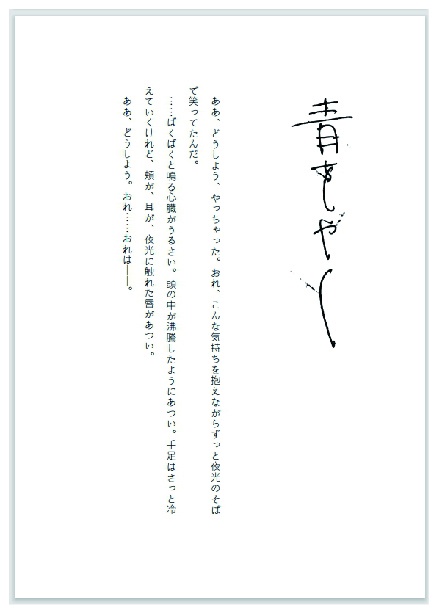 青あやし
ああ、どうしよう、やっちゃった。おれ、こんな気持ちを抱えながらずっと夜光のそば
で笑ってたんだ。
……ばくばくと鳴る心臓がうるさい。頭の中が沸騰したようにあつい。手足はさっと冷
えていくけれど、頬が、耳が、夜光に触れた唇があつい。
ああ、どうしよう。おれ……おれは――。